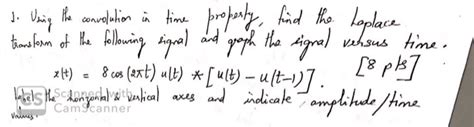 1. Using the convolution in time property, find the Laplace
transform of the following signal and graph the signal versus time.
x(t) = 8 cos (2πt) u(t) * [u(t) - u(t-1)]. [8 pts]
Label the horizontal & vertical axes and indicate amplitude/time
values.
CS Scanned with
CamScanner